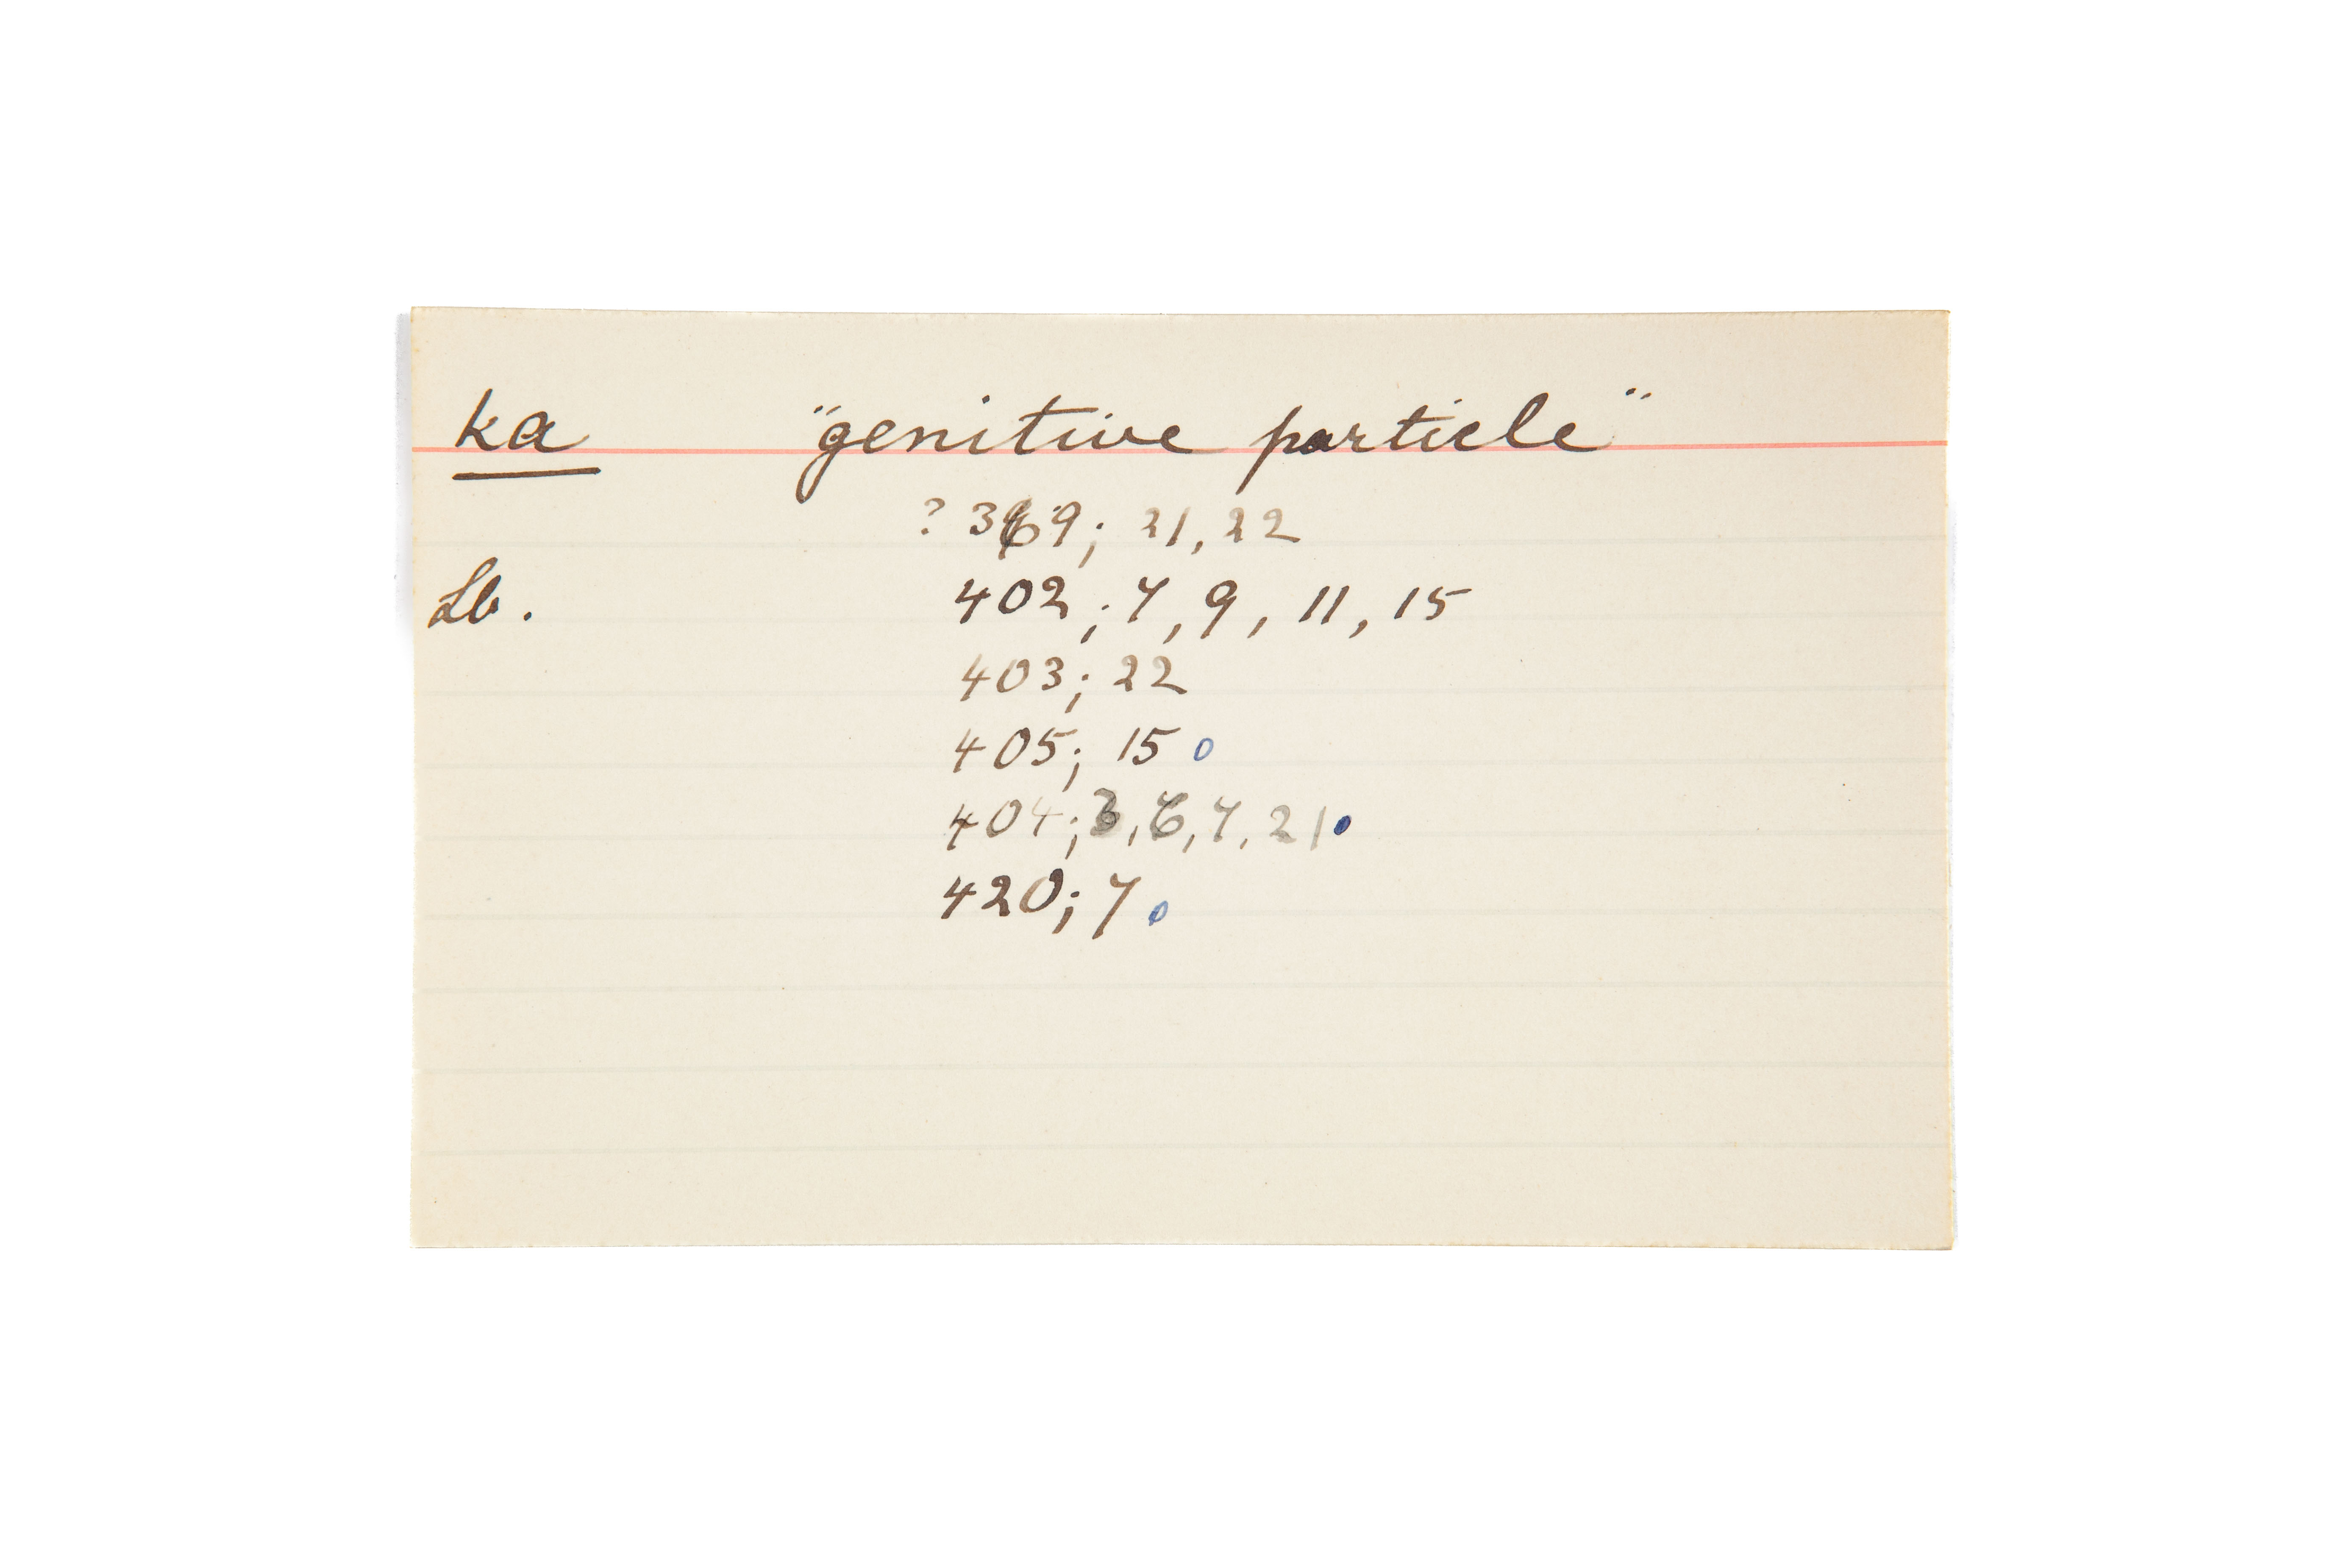 ka "genitive particle"
? 369; 21, 22
Lb. 402; 7, 9, 11, 15
403; 22
405; 15 o
404; 3, 6, 7, 21
420; 7 o